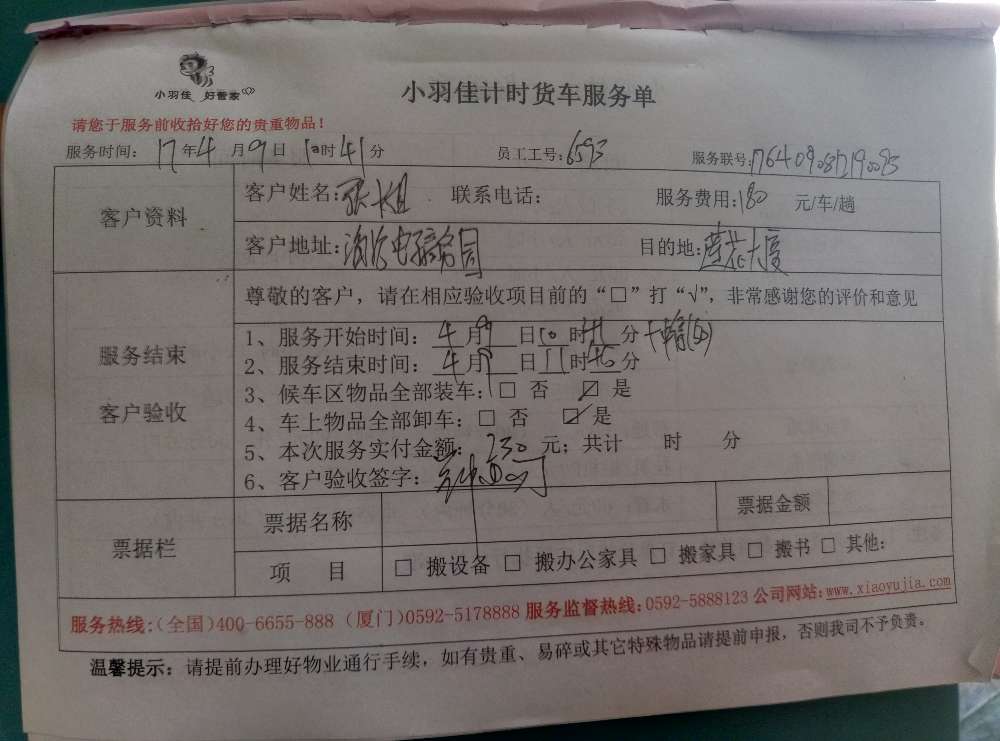 小羽佳 好管家
小羽佳计时货车服务单
请您于服务前收拾好您的贵重物品！
服务时间：17年4月9日10时41分 员工工号：6593 服务联号：
客户资料
客户姓名：张大姐 联系电话： 服务费用：180 元/车/趟
客户地址： 目的地：莲花大厦
服务结束
客户验收
尊敬的客户，请在相应验收项目前的“□”打“√”，非常感谢您的评价和意见
1、服务开始时间：4月9日10时41分
2、服务结束时间：4月9日11时 分
3、候车区物品全部装车：□ 否 ☑ 是
4、车上物品全部卸车：□ 否 ☑ 是
5、本次服务实付金额：230元；共计 时 分
6、客户验收签字：
票据栏
票据名称 票据金额
项 目 □ 搬设备 □ 搬办公家具 □ 搬家具 □ 搬书 □ 其他：
服务热线：（全国）400-6655-888（厦门）0592-5178888 服务监督热线：0592-5888123 公司网站：www.xiaoyujia.com
温馨提示：请提前办理好物业通行手续，如有贵重、易碎或其它特殊物品请提前申报，否则我司不予负责。